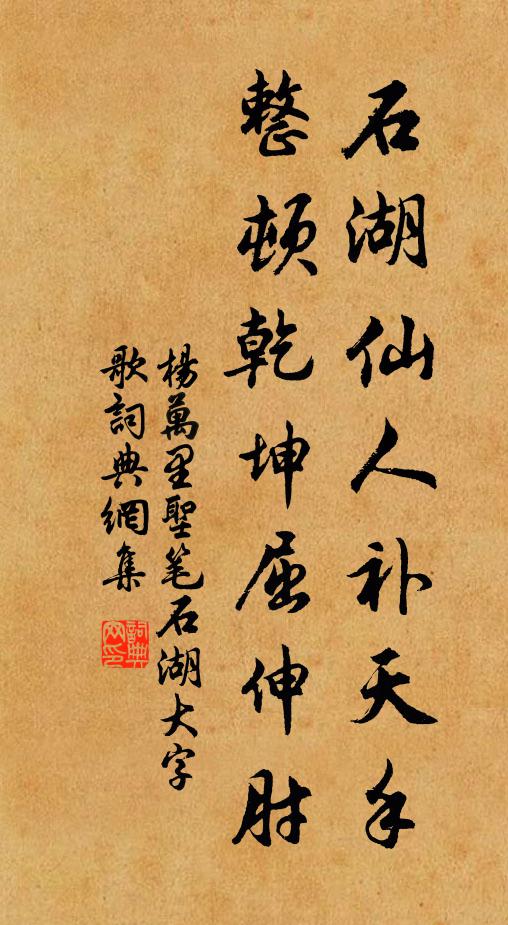 石湖仙人补天手
整顿乾坤屈伸肘
楊萬里聖笔石湖大字
歌詞典網集
詞典
网印